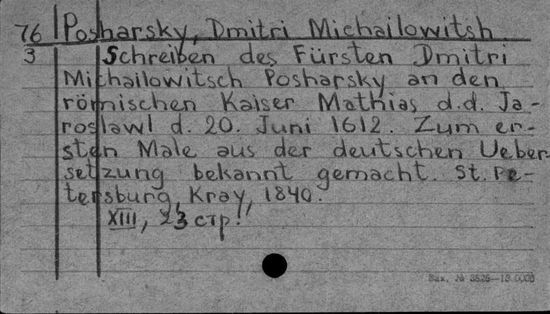 76 Posharsky, Dmitri Michailowitsh
3 Schreiben des Fürsten Dmitri
Michailowitsch Posharsky an den
römischen Kaiser Mathias d.d. Ja-
roslawl d. 20. Juni 1612. Zum er-
sten Male aus der deutschen Ueber
setzung bekannt gemacht. St. Pe-
tersburg, Kray, 1840.
XIII, 23 стр.
Зак. № 3526—13.0000